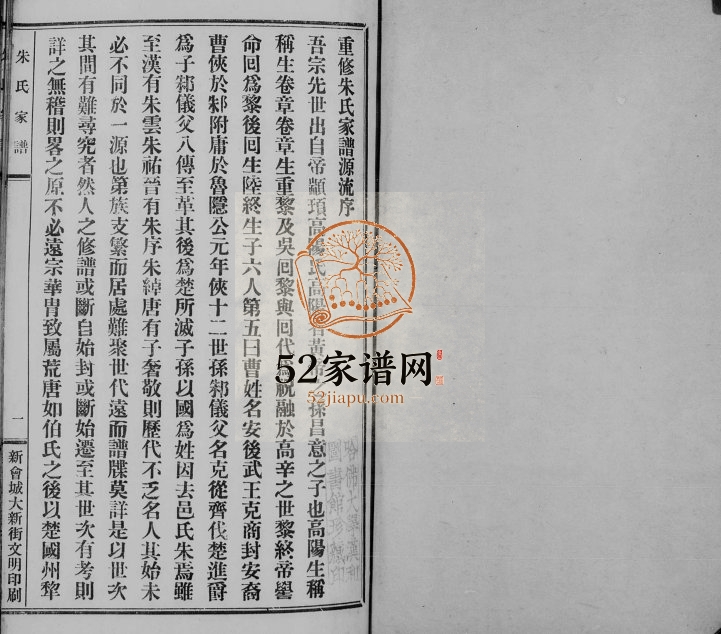 重修朱氏家譜源流序
吾宗先世出自帝顓頊高陽氏高陽者黃帝之孫昌意之子也高陽生稱
稱生卷章卷章生重黎及吳回黎與回代為祝融於高辛之世黎終帝嚳
命回為黎後回生陸終生子六人第五曰曹姓名安後武王克商封安裔
曹俠於邾附庸於魯隱公元年俠十二世孫邾儀父名克從齊伐楚進爵
為子邾儀父八傳至革其後為楚所滅子孫以國為姓因去邑氏朱焉雖
至漢有朱雲朱祐晉有朱序朱綽唐有子奢敬則歷代不乏名人其始未
必不同於一源也第族支繁而居處難聚世代遠而譜牒莫詳是以世次
其間有難尋究者然人之修譜或斷自始封或斷始遷至其世次有考則
詳之無稽則畧之原不必遠宗華胄致屬荒唐如伯氏之後以楚國州犂
朱氏家譜
一
新會城大新街文明印刷
52家谱网
52jiapu.com